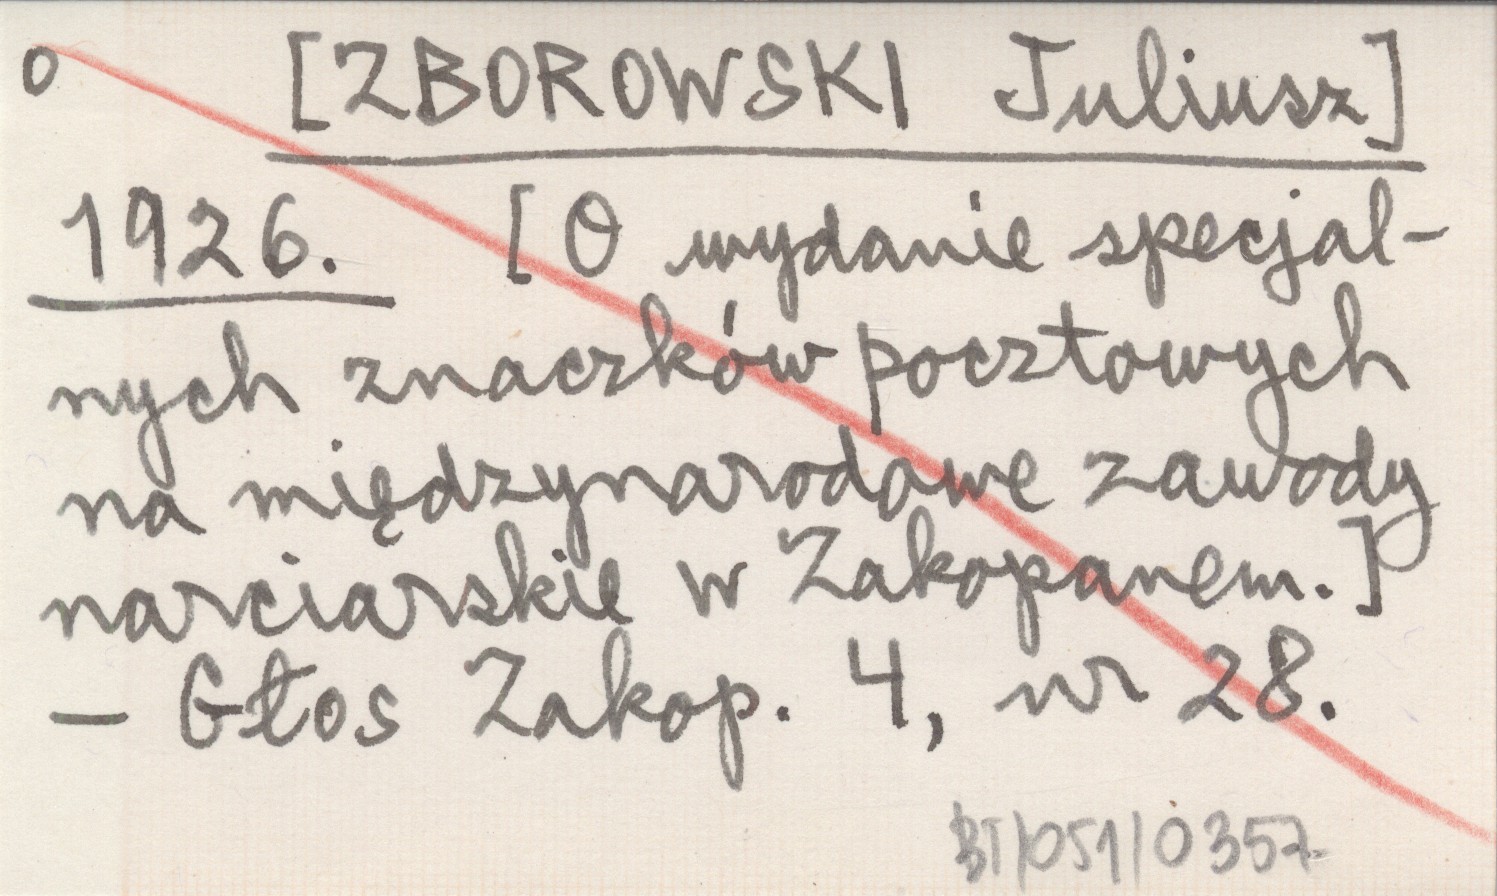 o [ZBOROWSKI Juliusz]
1926. [O wydanie specjal-
nych znaczków pocztowych
na międzynarodowe zawody
narciarskie w Zakopanem.]
– Głos Zakop. 4, nr 28.
BT/051/0357